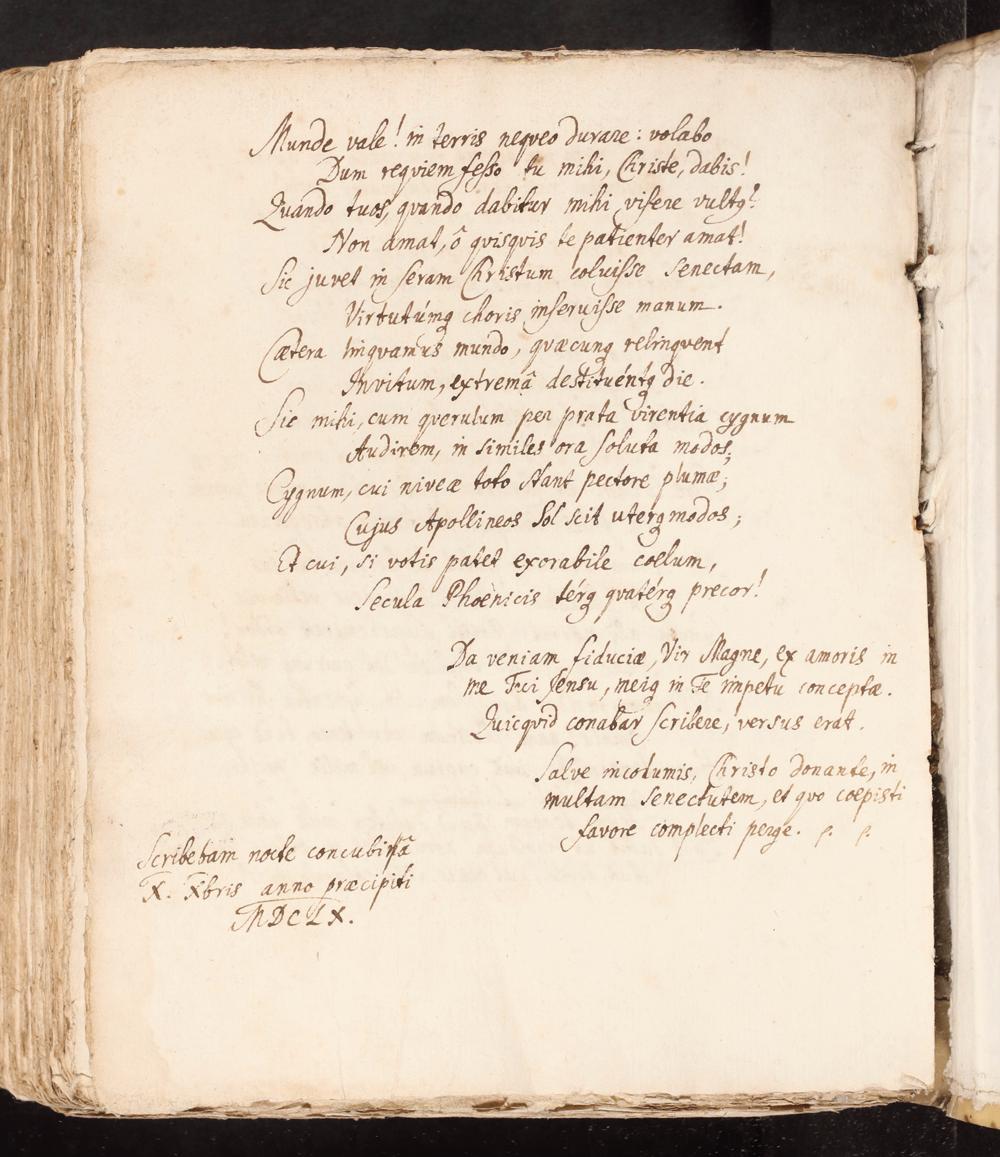 Munde vale! in terris neqveo durare: volabo
Dum reqviem fesso tu mihi, Christe, dabis!
Qvando tuos, qvando dabitur mihi visere vultq?
Non amat, ô qvisqvis te patienter amat!
Sic juvet in seram Christum coluisse senectam,
Virtutúmq choris inseruisse manum.
Cætera linqvamus mundo, qvæcunq relinqvent
Invitum, extremâ destituéntq die.
Sic mihi, cum qverulum per prata virentia cygnum
Audirem, in similes ora soluta modos;
Cygnum, cui niveæ toto stant pectore plumæ;
Cujus Apollineos Sol scit uterq modos;
Et cui, si votis patet exorabile coelum,
Secula Phoënicis térq qvatérq precor!
Da veniam fiduciæ, Vir Magne, ex amoris in
me Tui sensu, meiq in Te impetu conceptæ.
Qvicqvid conabar scribere, versus erat.
Salve incolumis, Christo donante, in
multam Senectutem, et qvo coepisti
favore complecti perge. P. P.
Scribebam nocte concubiâ
X. Xbris anno præcipiti
MDCLX.